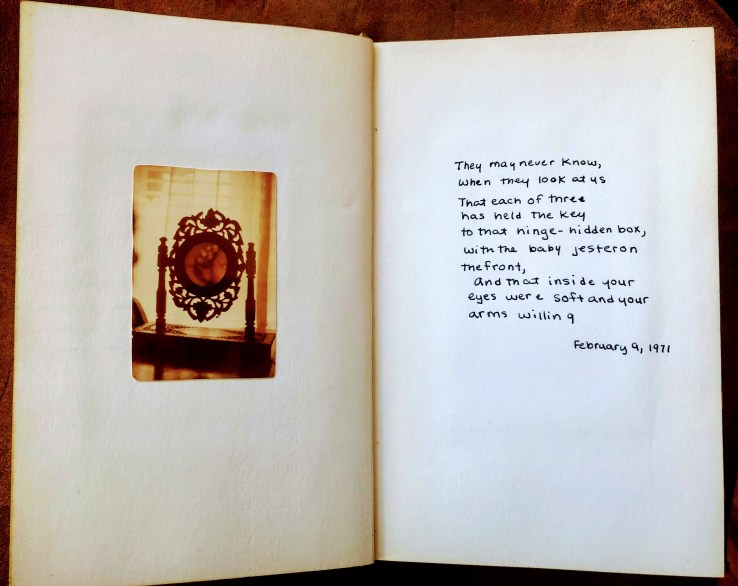 They may never Know,
when they look at us
That each of three
has held the key
to that hinge-hidden box,
with the baby jester on
the front,
And that inside your
eyes were soft and your
arms willing
February 9, 1971